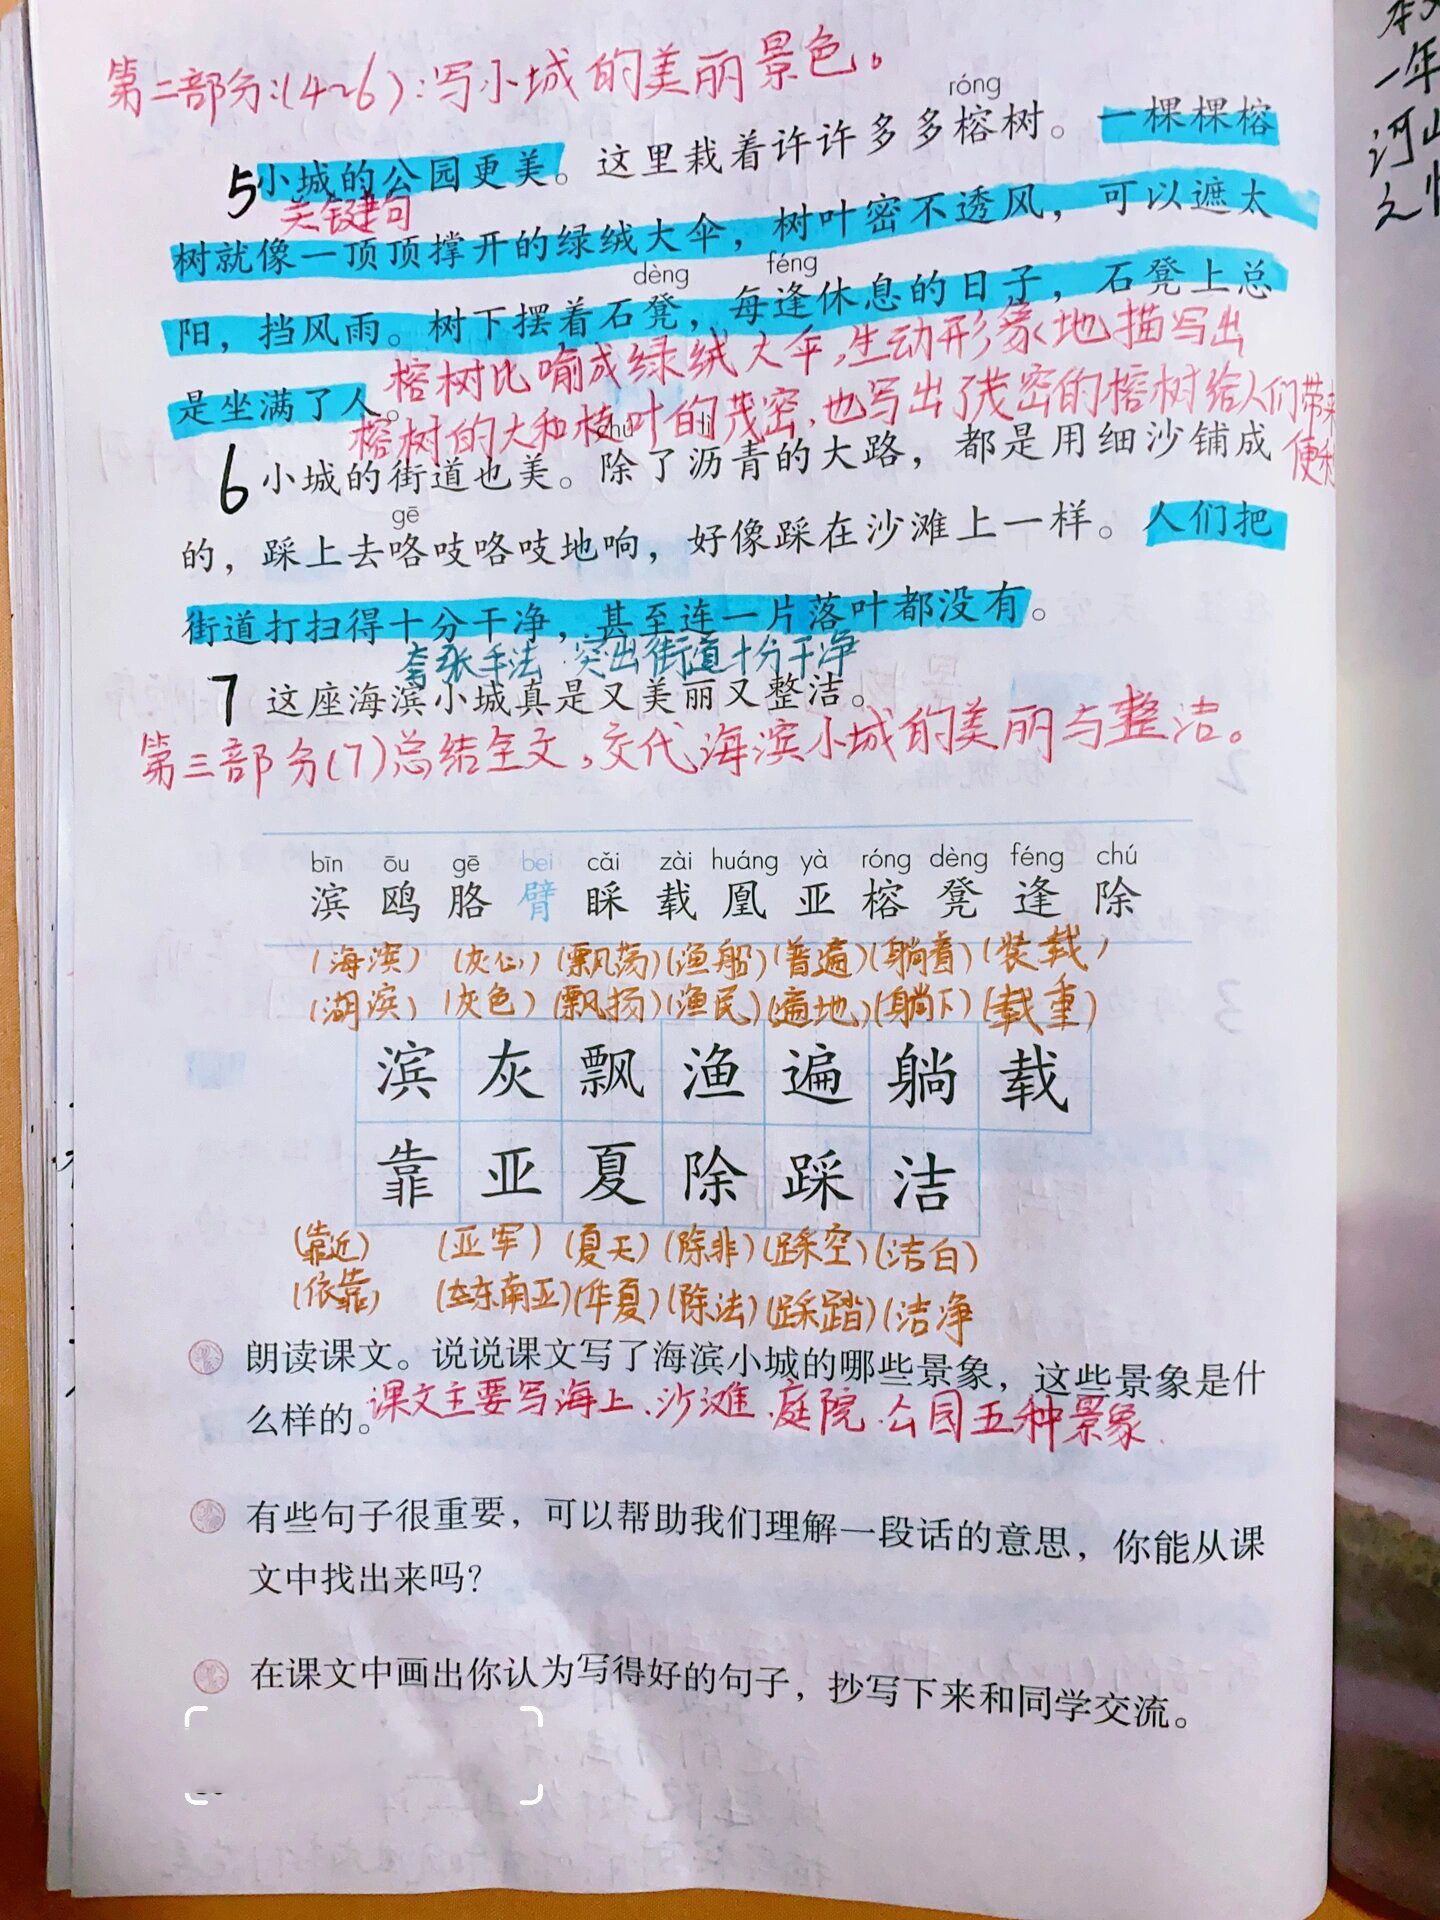 第二部分:(4~6):写小城的美丽景色。
róng
5 小城的公园更美。这里栽着许许多多榕树。一棵棵榕
关键句
树就像一顶顶撑开的绿绒大伞，树叶密不透风，可以遮太
dèng féng
阳，挡风雨。树下摆着石凳，每逢休息的日子，石凳上总
是坐满了人。
榕树比喻成绿绒大伞,生动形象地描写出
榕树的大和枝叶的茂密,也写出了茂密的榕树给人们带来
便利
6 小城的街道也美。除了沥青的大路，都是用细沙铺成
gē
的，踩上去咯吱咯吱地响，好像踩在沙滩上一样。人们把
街道打扫得十分干净，甚至连一片落叶都没有。
夸张手法 突出街道十分干净
7 这座海滨小城真是又美丽又整洁。
第三部分(7)总结全文,交代海滨小城的美丽与整洁。
bīn ōu gē bei cǎi zài huáng yà róng dèng féng chú
滨 鸥 胳 臂 睬 载 凰 亚 榕 凳 逢 除
(海滨) (灰心) (飘荡)(渔船)(普遍)(躺着)(装载)
(湖滨) (灰色) (飘扬)(渔民)(遍地)(躺下)(载重)
滨 灰 飘 渔 遍 躺 载
靠 亚 夏 除 踩 洁
(靠近) (亚军) (夏天) (除非)(踩空)(洁白)
(依靠) (东南亚)(华夏)(除法)(踩踏)(洁净
朗读课文。说说课文写了海滨小城的哪些景象，这些景象是什
么样的。
课文主要写海上、沙滩、庭院、公园五种景象.
有些句子很重要，可以帮助我们理解一段话的意思，你能从课
文中找出来吗？
在课文中画出你认为写得好的句子，抄写下来和同学交流。
一年
河山